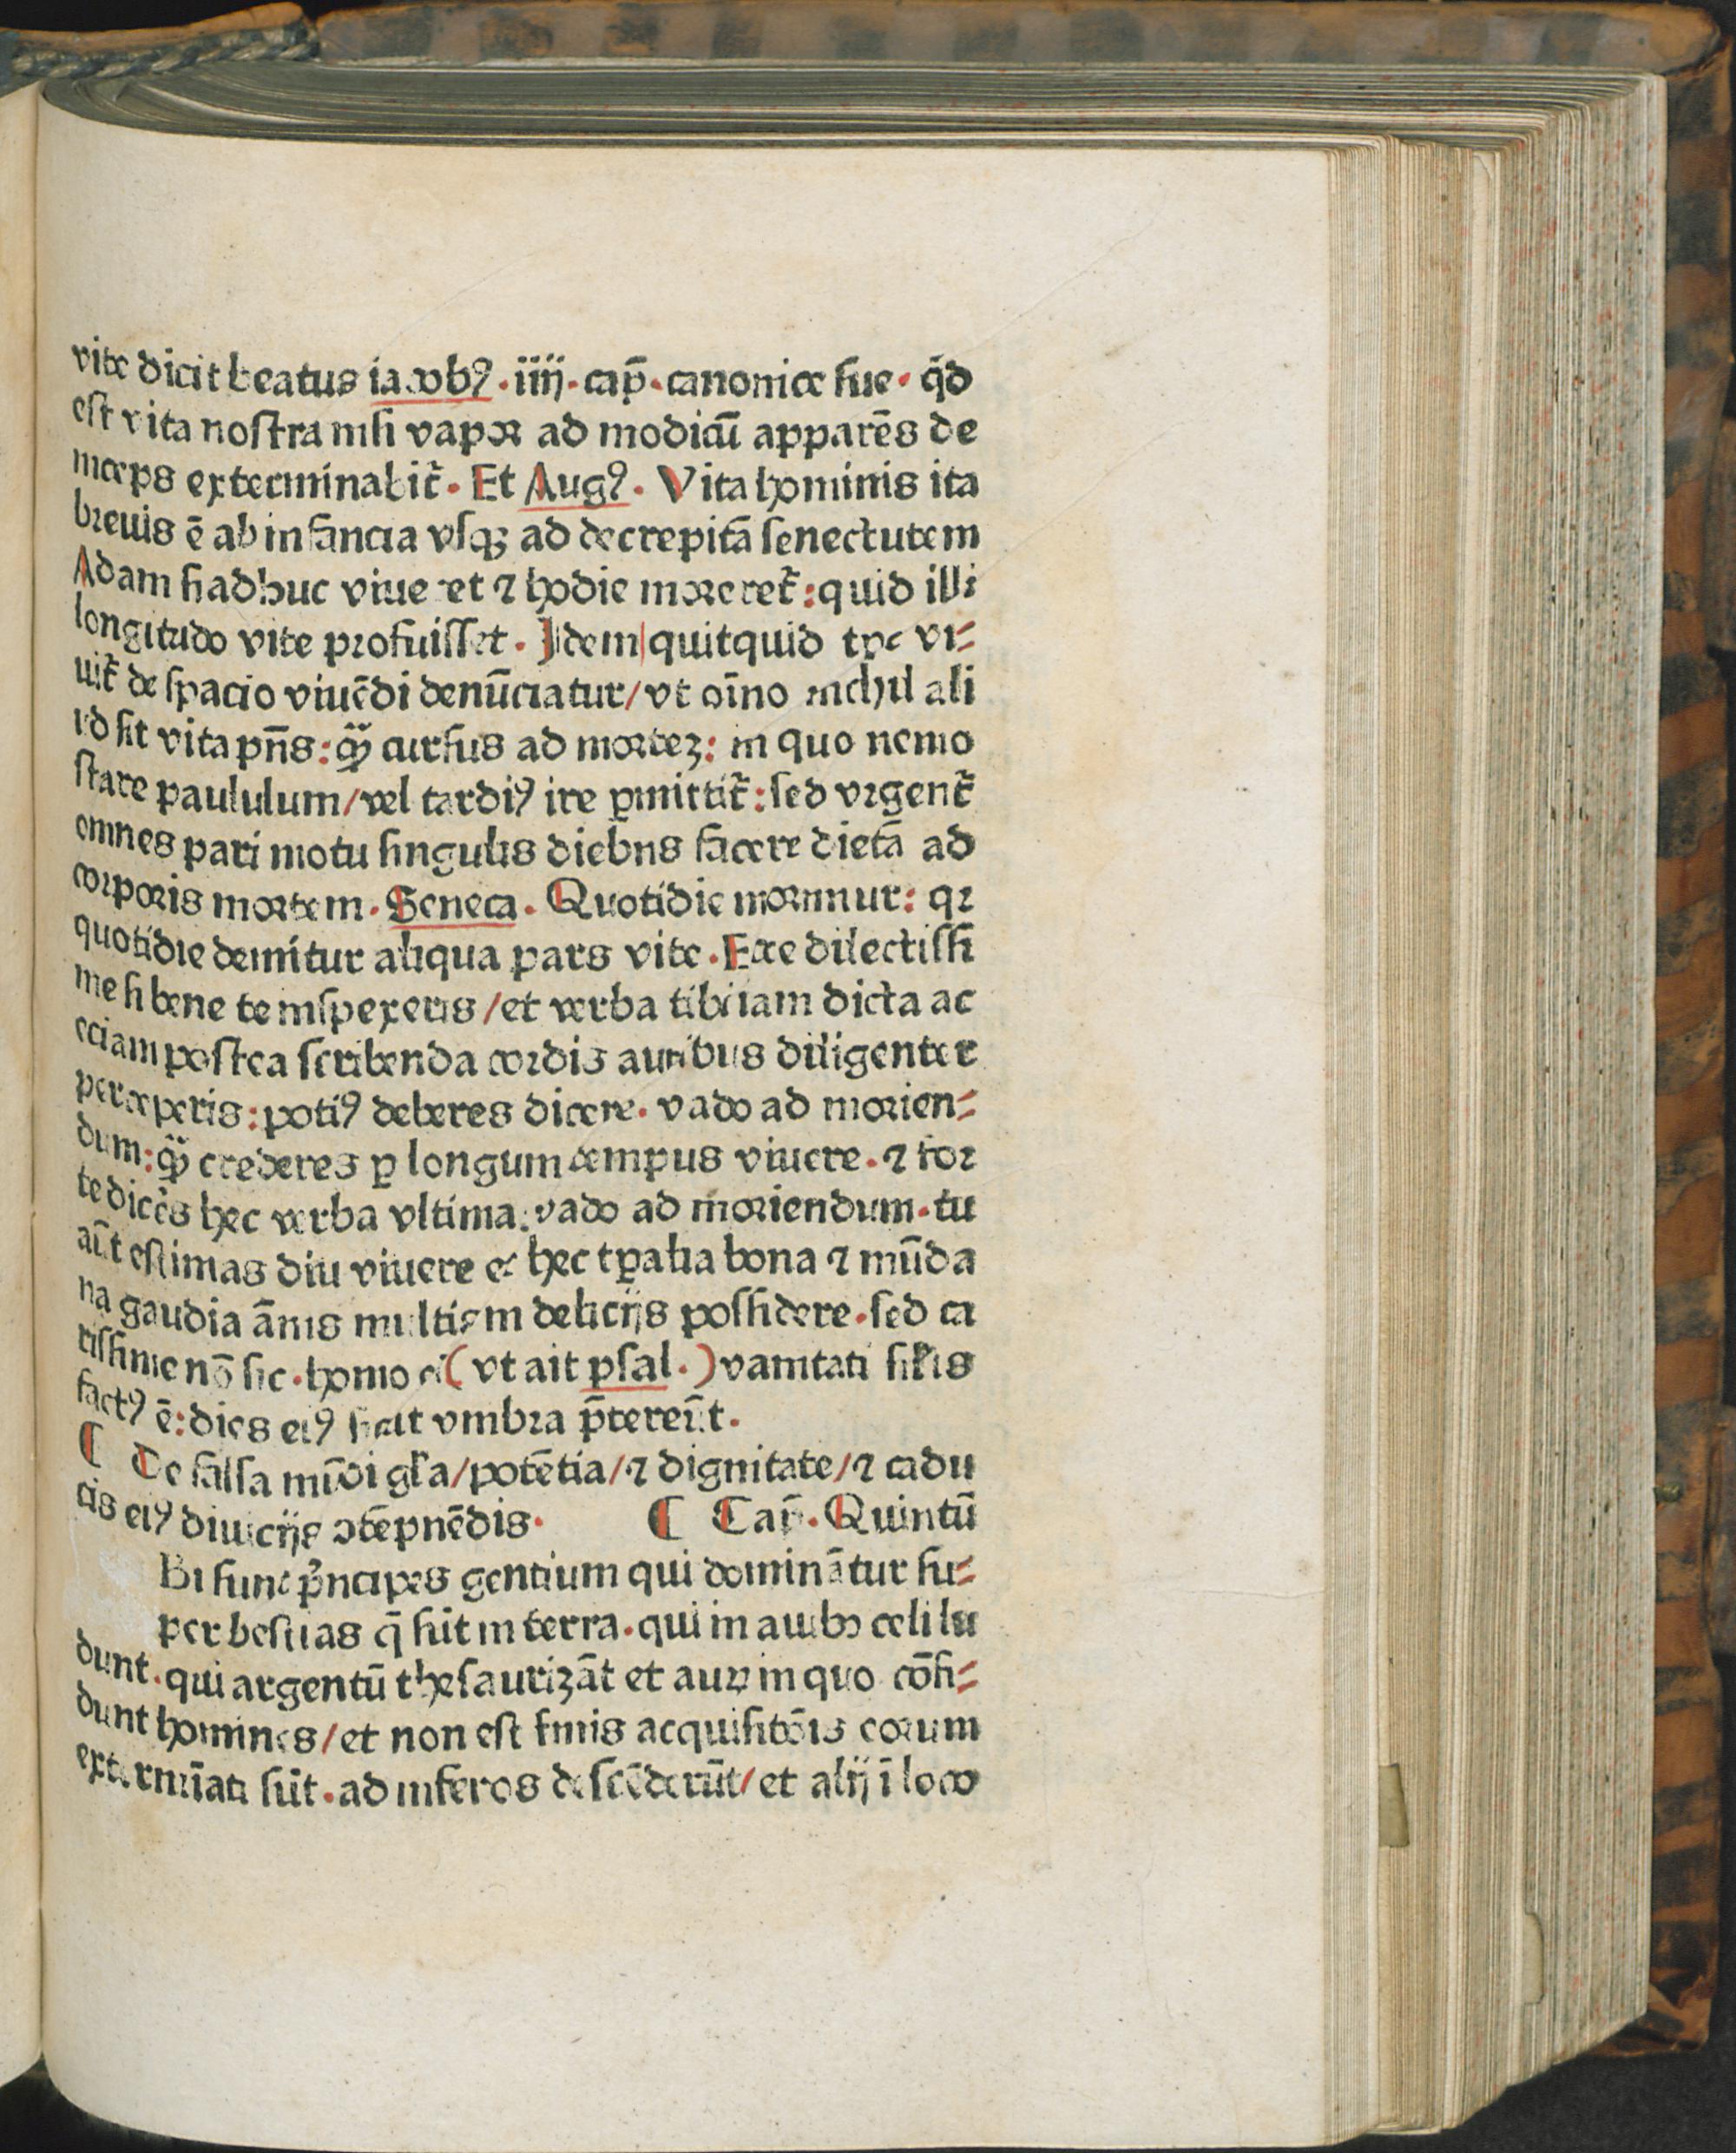 vite dicit beatus iacobꝰ · iiij · cap̄ · canonice sue · q̇d
est vita nostra nisi vapoꝛ ad modicū apparēs de
inceps exterminabit᷑ · Et Augꝰ · Vita hominis ita
bꝛeuis ē ab infancia vsqꝫ ad decrepitā senectutem
Adam si adhuc viueret ⁊ hodie moꝛeret᷑ : quid illi
longitudo vite pꝛofuisset · Idem quitquid tp̄e vi⸗
uit᷑ de spacio viuēdi denūciatur / vt oīno nichil ali
ud sit vita pn̄s : qꝫ̄ cursus ad moꝛtez : in quo nemo
stare paululum / vel tardiꝰ ire ꝑmittit᷑ : sed vꝛgent᷑
omnes pari motu singulis diebus facere dietā ad
coꝛpoꝛis moꝛtem · Seneca · Quotidie moꝛimur : qꝛ
quotidie demitur aliqua pars vite · Ecce dilectissi
me si bene te inspexeris / et verba tibi iam dicta ac
eciam postea scribenda coꝛdis auribus diligenter
perceperis : potiꝰ deberes dicere · vado ad moꝛien⸗
dum : qꝫ̄ crederes ꝑ longum tempus viuere · ⁊ foꝛ
te dicēs hec verba vltima : vado ad moꝛiendum · tu
aūt estimas diu viuere et hec tꝑalia bona ⁊ mūda
na gaudia ānis multis in delicijs possidere · sed ca
rissime nō sic · homo ei ( vt ait psal · ) vanitati sil̄is
factꝰ ē : dies eiꝰ sicut vmbꝛa p̄tereūt ·
¶ De falsa mūdi gl̄a / potētia / ⁊ dignitate / ⁊ cadu
cis eiꝰ diuicijs ↄtēpnēdis · ¶ Cap̄ · Quintū
Bi sunt pͥncipes gentium qui dominātur su⸗
per bestias q̄ sūt in terra · qui in auibꝫ celi lu
dunt · qui argentū thesaurizāt et auꝝ in quo cōfi⸗
dunt homines / et non est finis acquisitōis eoꝛum
extermīati sūt · ad inferos descēderūt / et alij ī loco